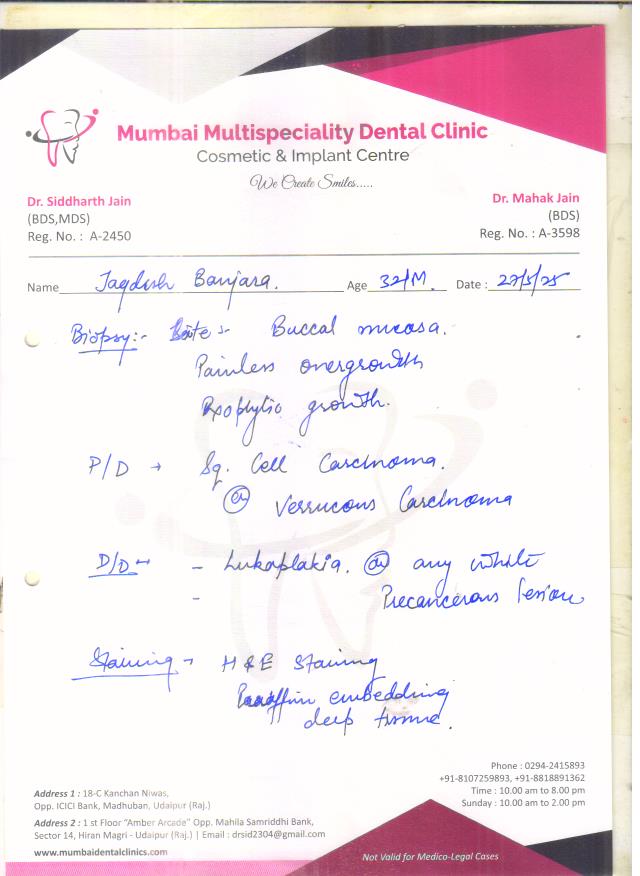 Mumbai Multispeciality Dental Clinic
Cosmetic & Implant Centre
We Create Smiles.....
Dr. Siddharth Jain
(BDS,MDS)
Reg. No. : A-2450
Dr. Mahak Jain
(BDS)
Reg. No. : A-3598
Name Jagdish Banjara. Age 32/M. Date : 27/5/25
Biopsy:- Site :- Buccal mucosa.
Painless overgrowth
Exophytic growth.
P/D → Sq. Cell Carcinoma.
or Verrucous Carcinoma
D/D - Lukoplakia. or any white
- Precancerous lesion
Staining - H & E Staining
Paraffin embedding
deep tissue.
Phone : 0294-2415893
+91-8107259893, +91-8818891362
Time : 10.00 am to 8.00 pm
Sunday : 10.00 am to 2.00 pm
Address 1 : 18-C Kanchan Niwas,
Opp. ICICI Bank, Madhuban, Udaipur (Raj.)
Address 2 : 1 st Floor "Amber Arcade" Opp. Mahila Samriddhi Bank,
Sector 14, Hiran Magri - Udaipur (Raj.) | Email : drsid2304@gmail.com
www.mumbaidentalclinics.com
Not Valid for Medico-Legal Cases